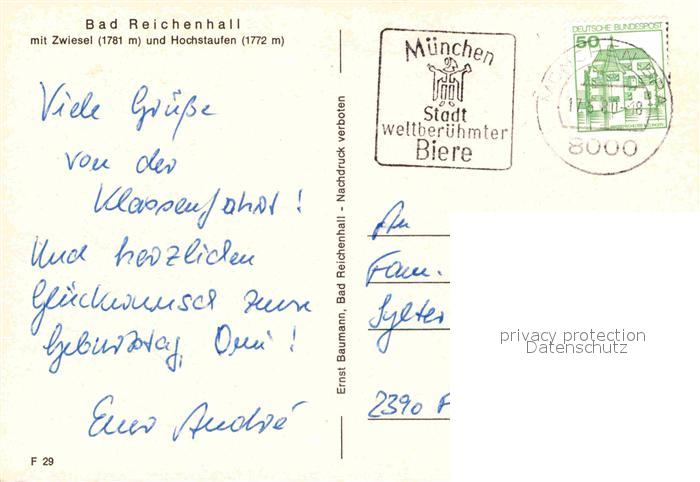 Bad Reichenhall
mit Zwiesel (1781 m) und Hochstaufen (1772 m)
Viele Grüße
von der
Klassenfahrt!
Und herzlichen
Glückwunsch zum
Geburtstag, Omi!
Euer André
F 29
Ernst Baumann, Bad Reichenhall - Nachdruck verboten
München
Stadt
weltberühmter
Biere
DEUTSCHE BUNDESPOST
50
8000
An
Fam.
Sylter
2390 F
privacy protection
Datenschutz